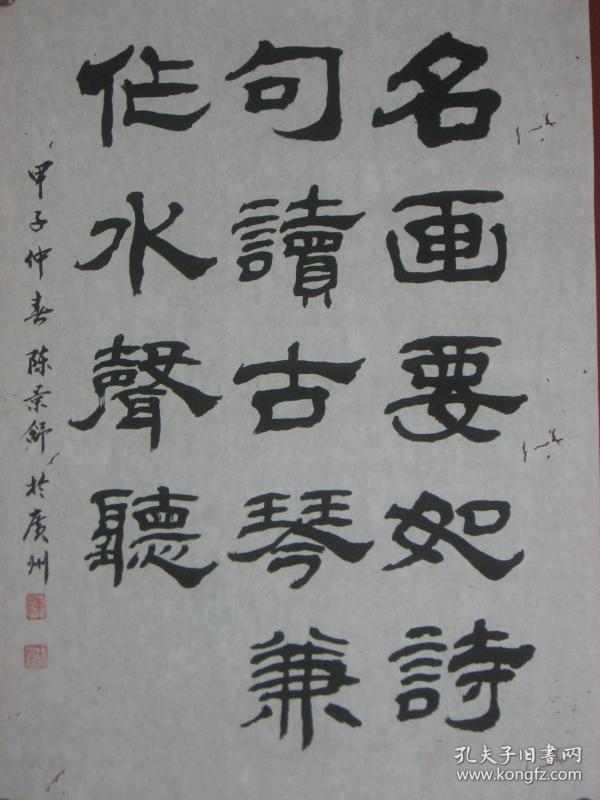 名画要如詩
句讀古琴兼
作水聲聽
甲子仲春陈景舒於廣州
孔夫子旧書网
www.kongfz.com